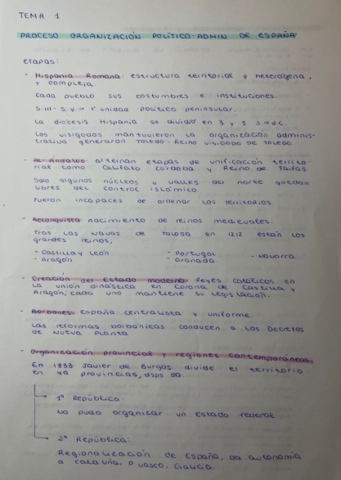 TEMA 1
PROCESO ORGANIZACIÓN POLÍTICO-ADMIN DE ESPAÑA
etapas:
· Hispania Romana: estructura territorial y heterogénea,
y compleja.
Cada pueblo sus costumbres e instituciones
S.III-S.V → 1ª unidad política peninsular.
La diócesis Hispania se dividió en
Los visigodos mantuvieron la organización adminis-
trativa generaron TOLEDO: REINO VISIGODO DE TOLEDO
· Al-Andalus alternan etapas de unificación territo-
rial como califato córdoba y Reino de Taifas
Solo algunos núcleos y valles del norte quedan
libres del control islámico
Fueron incapaces de ordenar los territorios.
· Reconquista nacimiento de reinos medievales.
Tras las Navas de Tolosa en 1212 están los
grandes reinos,
- Castilla y León - Portugal - Navarra
- Aragón - Granada
· Creación del Estado moderno Reyes católicos en
la unión dinástica en Corona de Castilla y
Aragón, cada uno mantiene su legislación.
· Borbones España centralista y uniforme.
Las reformas borbónicas conducen a los Decretos
de Nueva Planta
· Organización provincial y regiones contemporáneas
En 1833 Javier de Burgos divide el territorio
en 49 provincias, dsps 50.
→ 1ª República
No pudo organizar un estado federal
→ 2ª República:
Regionalización de España, da autonomía
a cataluña, P vasco, Galicia.